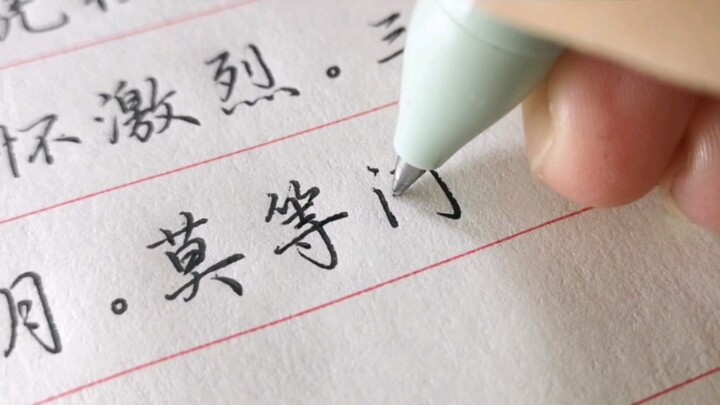 怀激烈。三
月。莫等门